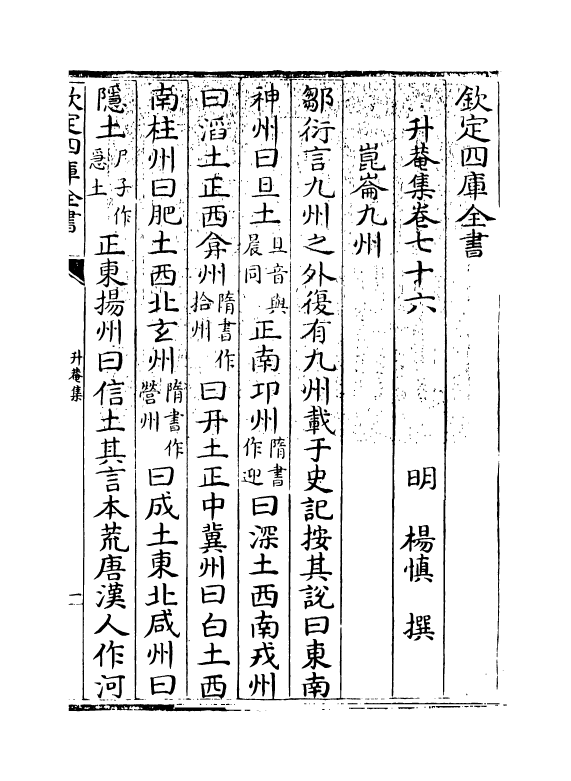 欽定四庫全書
升菴集卷七十六
明 楊慎 撰
崑崙九州
鄒衍言九州之外復有九州載于史記按其說曰東南
神州曰旦土旦音與晨同正南卭州隋書作迎曰深土西南戎州
曰滔土正西弇州隋書作拾州曰幵土正中冀州曰白土西
南柱州曰肥土西北玄州隋書作營州曰成土東北咸州曰
隱土尸子作㥯土正東揚州曰信土其言本荒唐漢人作河
欽定四庫全書
升菴集
一